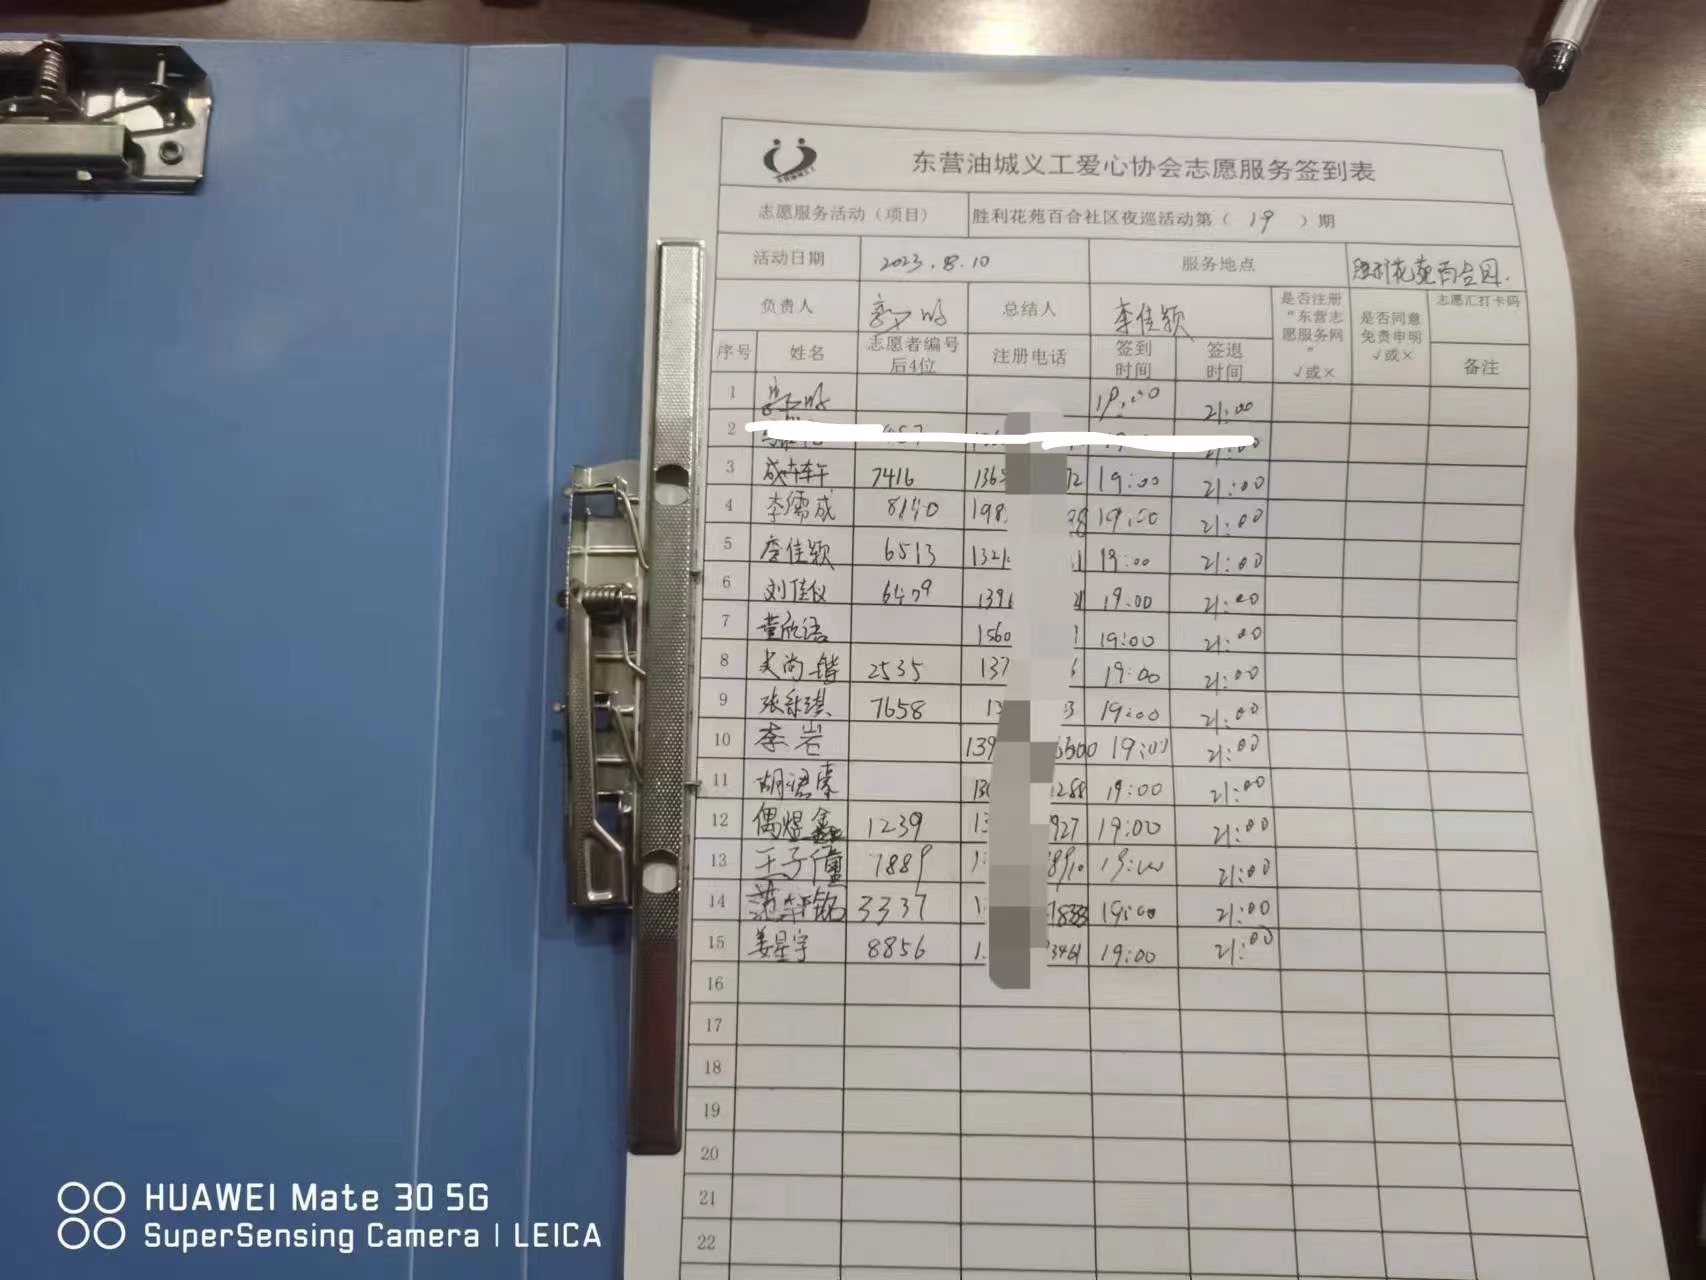 东营油城义工爱心协会志愿服务签到表
志愿服务活动（项目） 胜利花苑百合社区夜巡活动第（ 19 ）期
活动日期 2023.8.10 服务地点 胜利花苑百合园.
负责人 总结人 李佳颖 是否注册“东营志愿服务网” √或× 是否同意免责申明 √或× 志愿汇打卡码
序号 姓名 志愿者编号后4位 注册电话 签到时间 签退时间 备注
1 19:00 21:00
2
3 7416 136 72 19:00 21:00
4 李儒成 8140 198 19:00 21:00
5 李佳颖 6513 132 19:00 21:00
6 刘佳仪 6479 139 19:00 21:00
7 董欣语 1560 19:00 21:00
8 2535 137 19:00 21:00
9 7658 13 3 19:00 21:00
10 李岩 139 6500 19:00 21:00
11 胡 1288 19:00 21:00
12 偶煜鑫 1239 13 927 19:00 21:00
13 王子僮 7889 19:00 21:00
14 范 铭 3337 7833 19:00 21:00
15 姜星宇 8856 3461 19:00 21:00
16
17
18
19
20
21
22
HUAWEI Mate 30 5G
SuperSensing Camera | LEICA